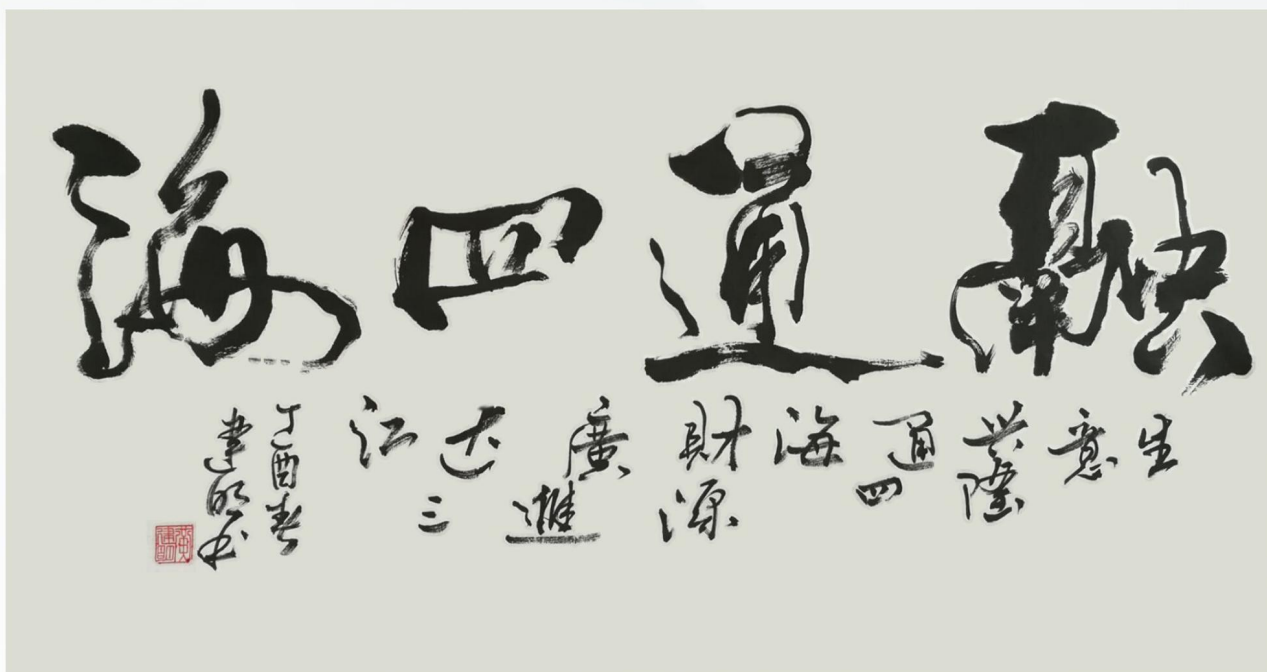 融通四海
生意兴隆通四海財源廣進达三江
丁酉春
建明书